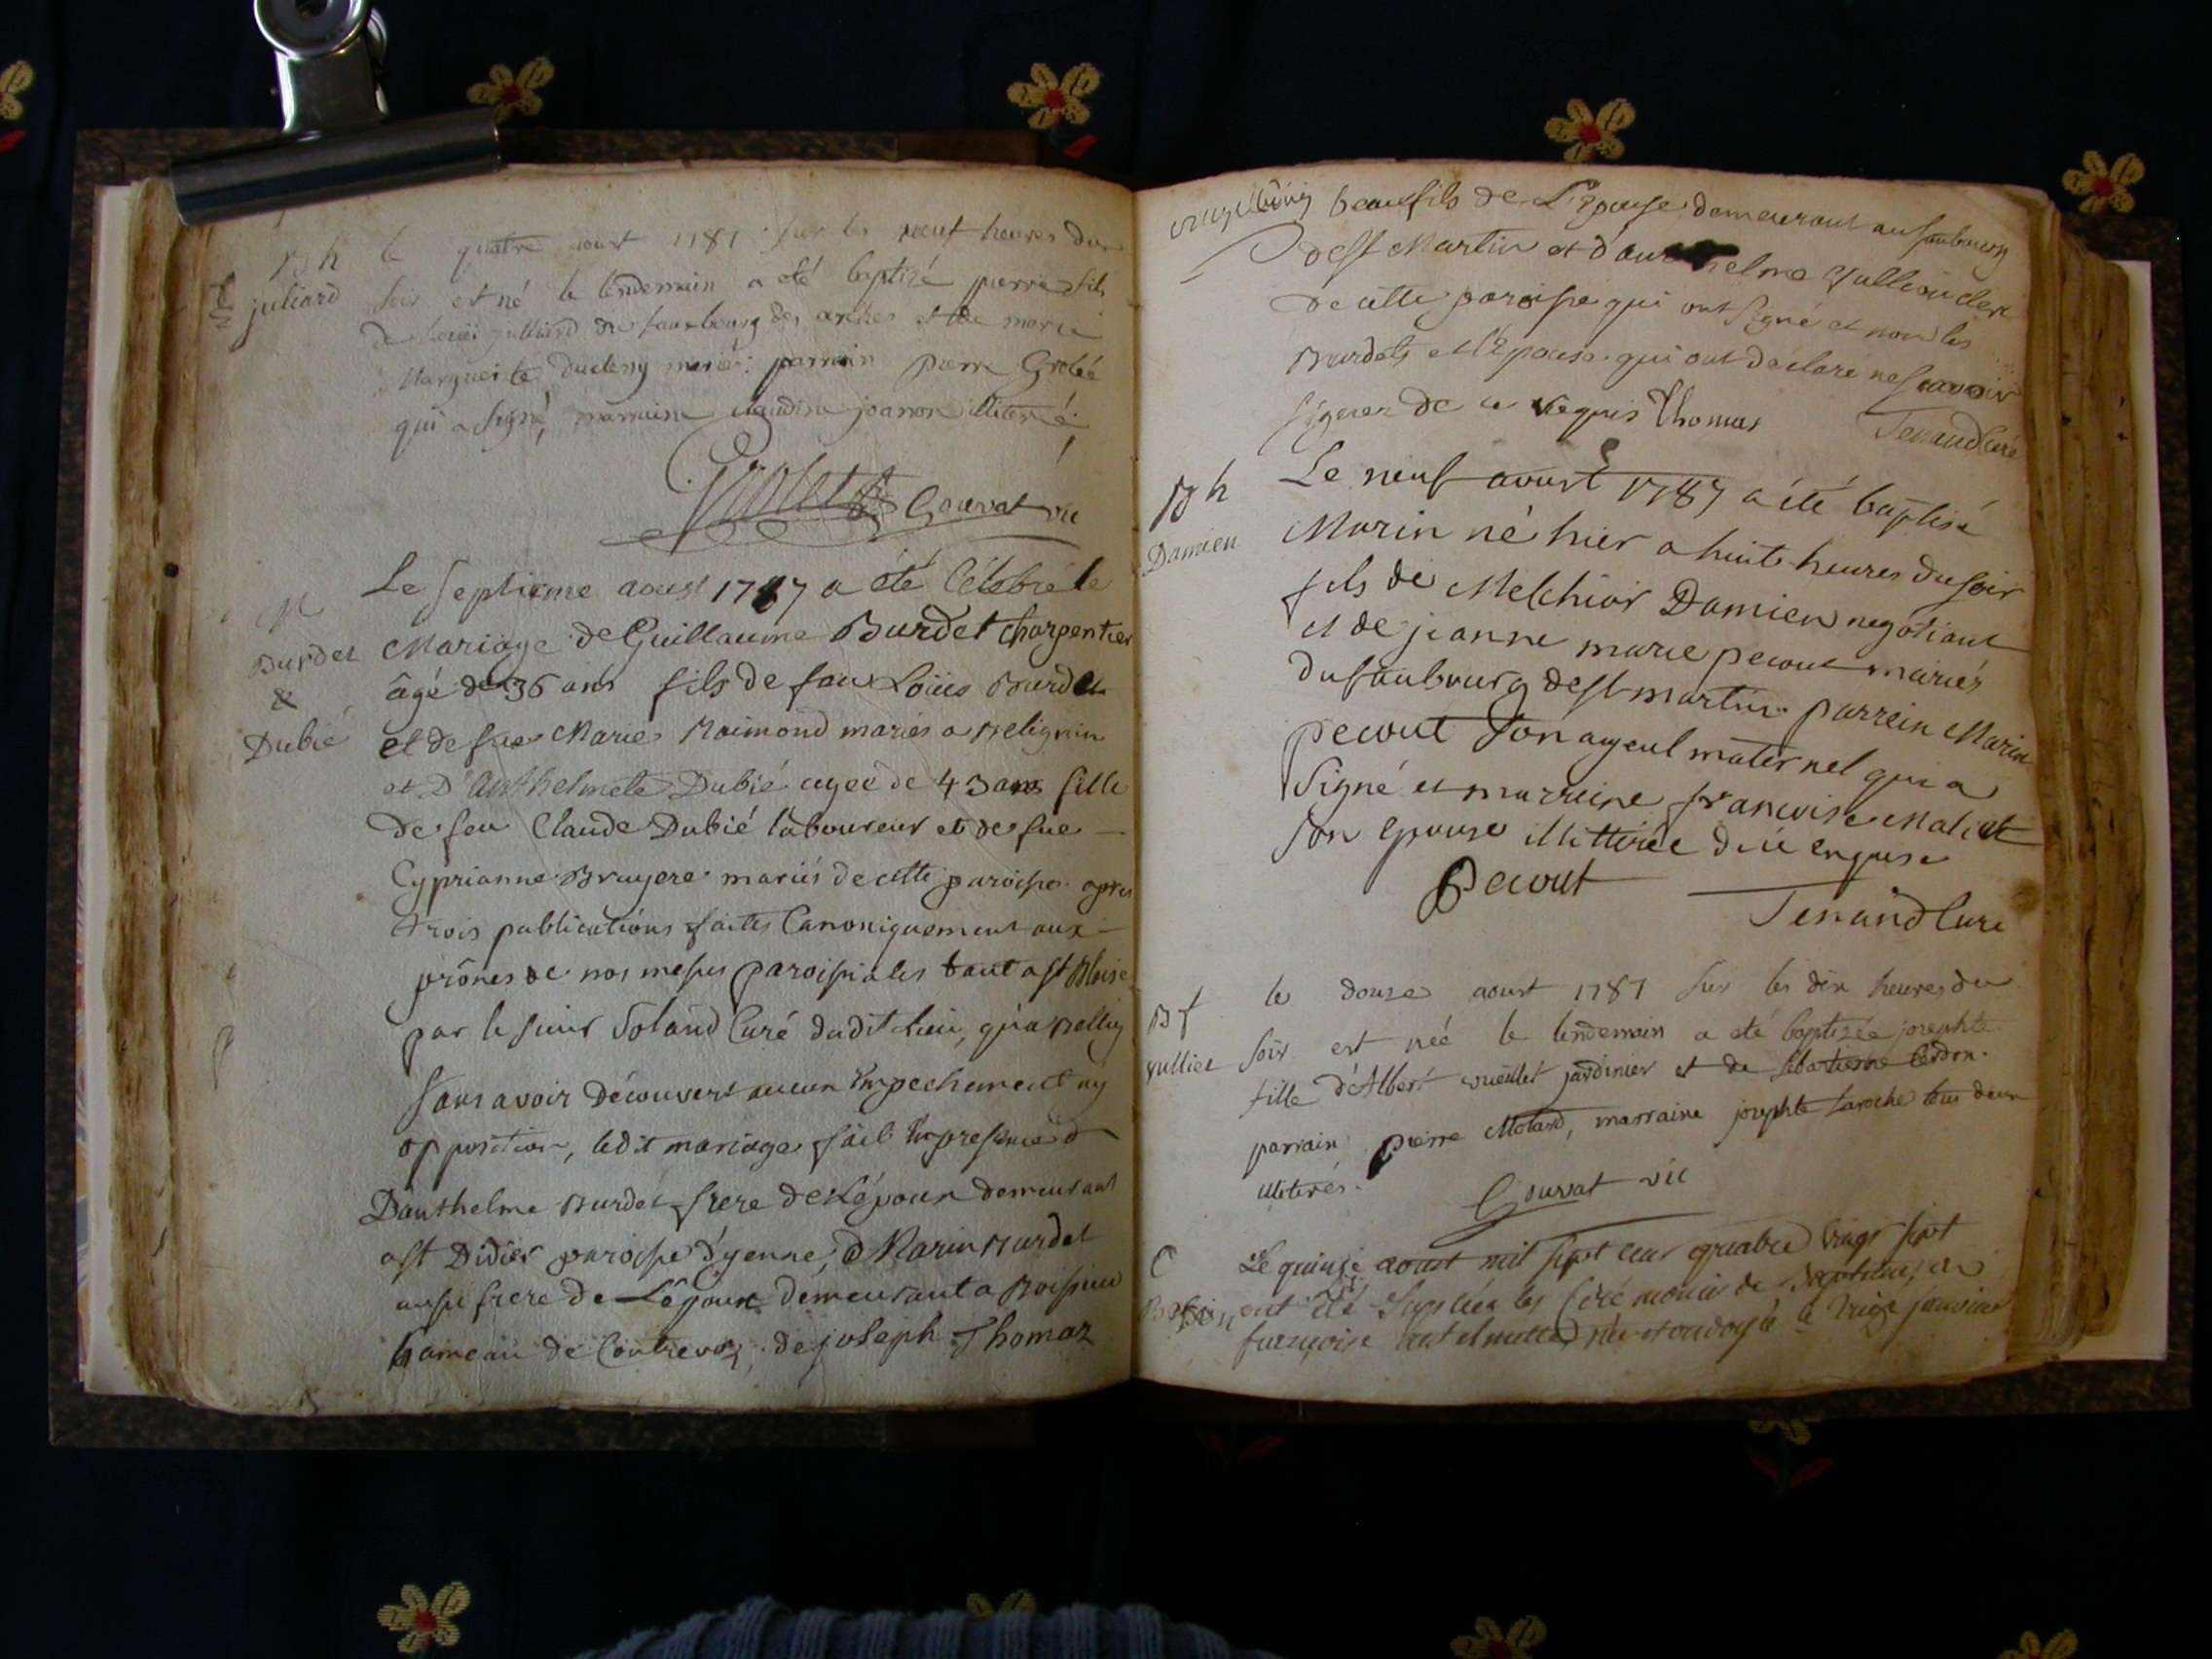 B h
juliard
le quatre aoust 1787 sur les neuf heures du
soir est né le lendemain a eté baptizé pierre fils
de Louis julliard du fauxbourg des arches et de marie
Marguerite mariés: parrain pierre Grolée
qui a signé, marraine claudine joanon illiterée
Grolet Gourvat vic
M
Burdet
&
Dubié
Le septieme aoust 1787 a été Célébré le
Mariage de Guillaume Burdet charpentier
âgé de 36 ans fils de feu Loüis Burdet
et de fue Marie Raimond mariés a Belignin
et D'Anthelmete Dubié agée de 43 ans fille
de feu Claude Dubié laboureur et de fue
Cyprianne Bruyere mariés de cette paroisse apres
trois publications faites Canoniquement aux
prônes de nos messes paroissiales tant a st Blaise
par le sieur Soland Curé dudit lieu, qu'a Belley
sans avoir découvert aucun Empechement ny
opposition, ledit mariage fait En presence
Danthelme Burdet frere de L'époux demeurant
a st Didier paroisse d'yenne, d Marin Burdet
aussi frere de L'époux demeurant a Boissieu
hameau de Contrevoz, de joseph Thomaz
beaufils de L'Epouse demeurant au faubourg
de st Martin et d'anthelme Gullion clerc
de cette paroisse qui ont signé et non les
Burdets et l'Epouse qui ont déclaré ne scavoir
signer de ce Requis Thomas Tenand Curé
B h
Damien
Le neuf aoust 1787 a été baptisé
Marin né hier a huit heures du soir
fils de Melchior Damien negotiant
et de jeanne marie pecout mariés
du faubourg de st martin parrein Marin
pecout son ayeul maternel qui a
signé et marreine francoise Maliet
son epouse illitterée de ce enquise
Pecout
Tenand Curé
B f
vulliet
le douze aoust 1787 sur les dix heures du
soir est née le lendemain a eté baptizée josephte
fille d'Albert vueillet jardinier et de sebastienne Cerdon.
parrain pierre Molard, marraine josephte Laroche tous deux
illiterés.
Gourvat vic
C
Le quinze aoust mil sept cent quatre vingt sept
ont été supplées les Cérémonies de Baptême a
françoise anthelmette née et ondoyée le janvier